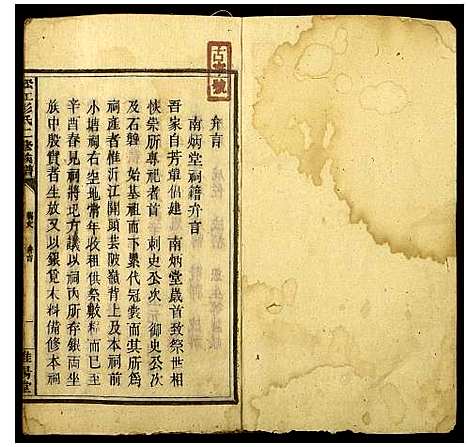 弁言
南炳堂祠籍弁言
吾家自芳單倡建 南炳堂歲首致祭世相
佚崇所專祀者首 刺史公次 御史公次
及石磐 始基祖而下累代冠裳而其所爲
祠產者惟沂江開頭芸陂嶺背上及本祠前
小塘祠右空地常年收租供祭敷糈而已至
辛酉春見祠將圮方議以祠丙所存銀兩坐
族中殷實者生放又以銀覓木料備修本祠
氏二修族譜
弁言
一
堂